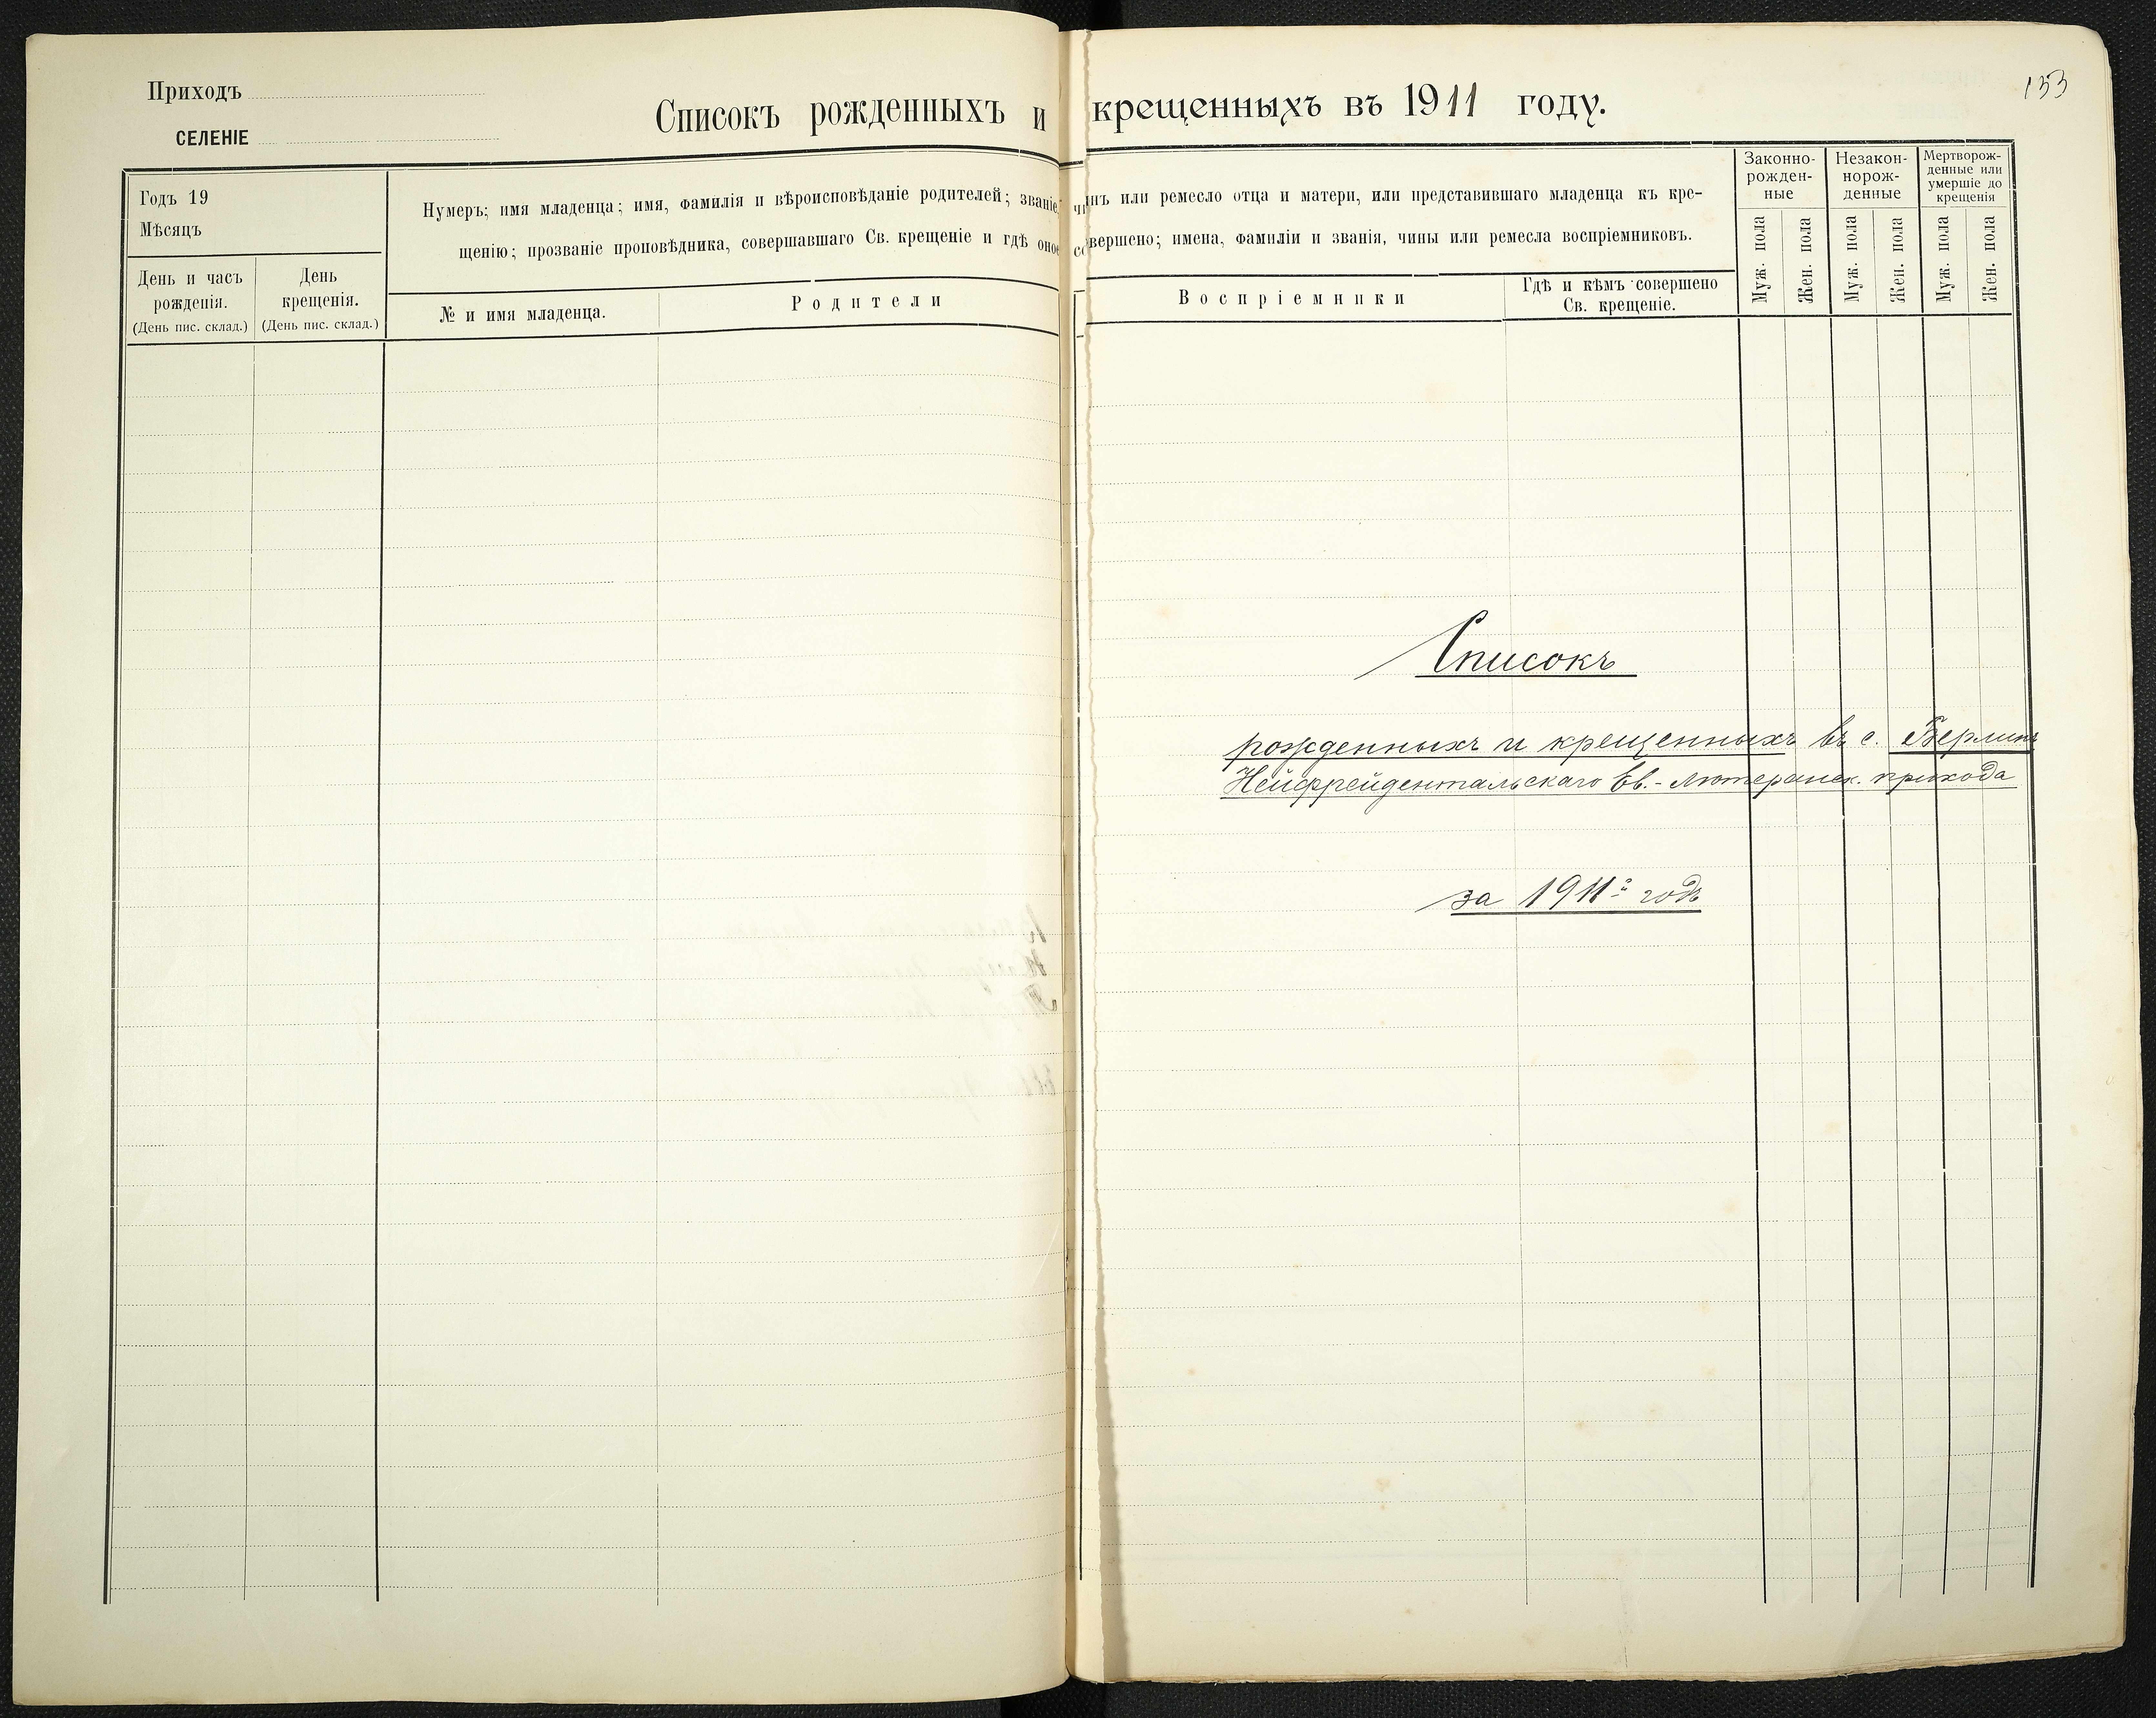 Приходъ
СЕЛЕНІЕ
Списокъ рожденныхъ и крещенныхъ въ 1911 году.
153
Годъ 19
Мѣсяцъ
День и часъ рожденія.
(День пис. склад.)
День крещенія.
(День пис. склад.)
Нумеръ; имя младенца; имя, фамилія и вѣроисповѣданіе родителей; званіе, чинъ или ремесло отца и матери, или представившаго младенца къ кре-
щенію; прозваніе проповѣдника, совершавшаго Св. крещеніе и гдѣ оное совершено; имена, фамиліи и званія, чины или ремесла воспріемниковъ.
№ и имя младенца.
Родители
Воспріемники
Гдѣ и кѣмъ совершено
Св. крещеніе.
Законно-
рожден-
ные
Незакон-
норож-
денные
Мертворож-
денные или
умершіе до
крещенія
Муж. пола
Жен. пола
Муж. пола
Жен. пола
Муж. пола
Жен. пола
Списокъ
рожденныхъ и крещенныхъ въ с. Берлинъ
Нейфрейдентальскаго Ев.-Лютеранск. прихода
за 1911й годъ